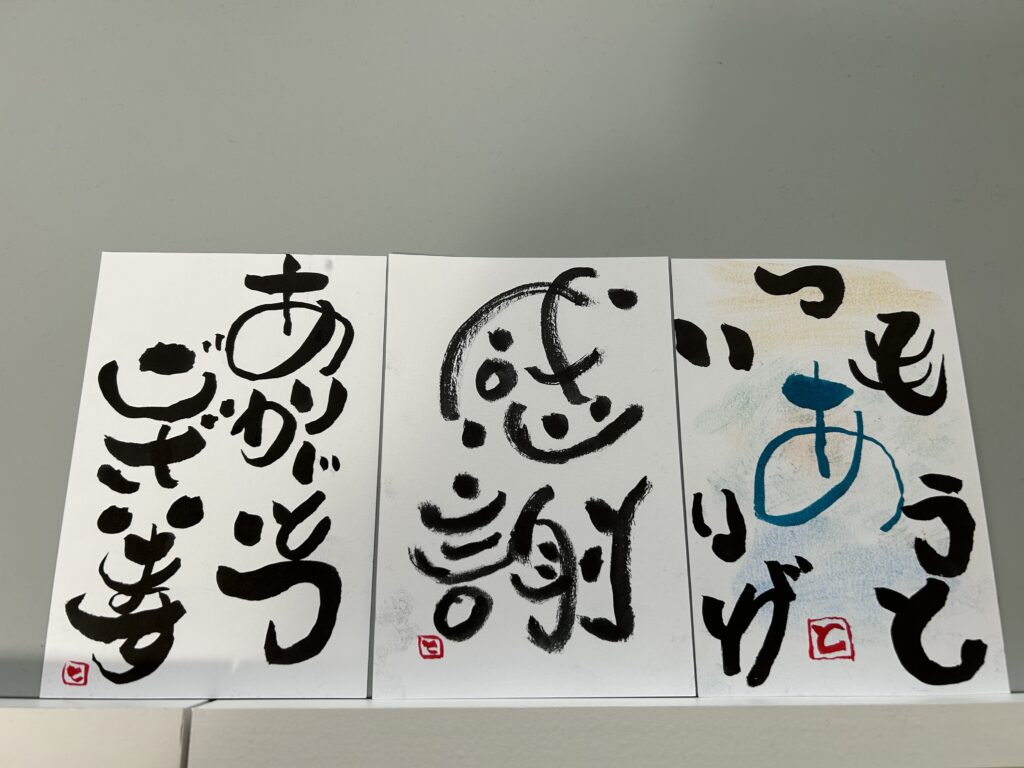 ありがとう
ございます
と
感謝
と
いつも
ありがとう
と